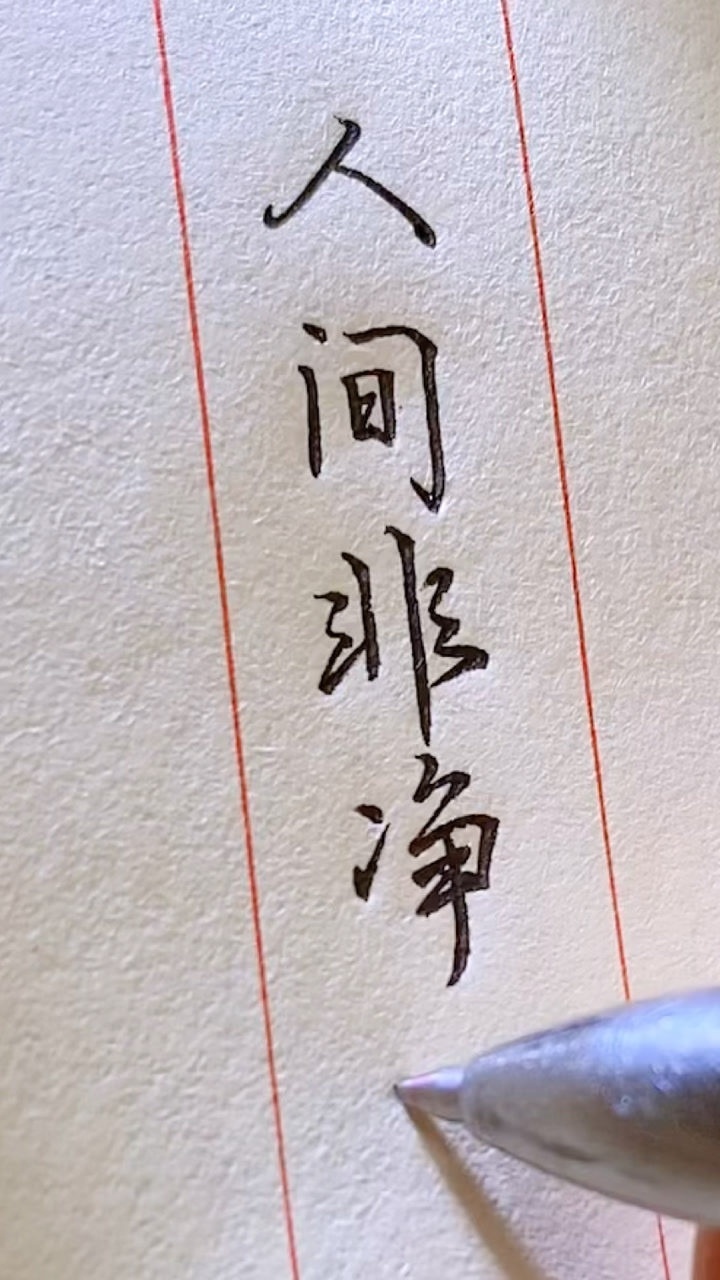 人间非净